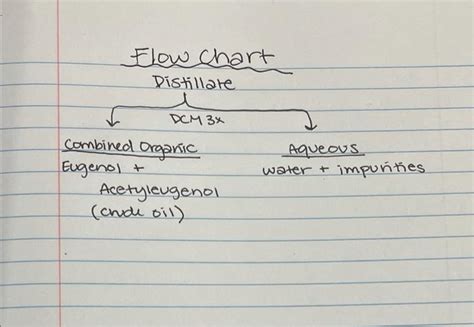 Flow Chart
Distillate
DCM 3x
Combined Organic
Eugenol +
Acetyleugenol
(crude oil)
Aqueous
water + impurities